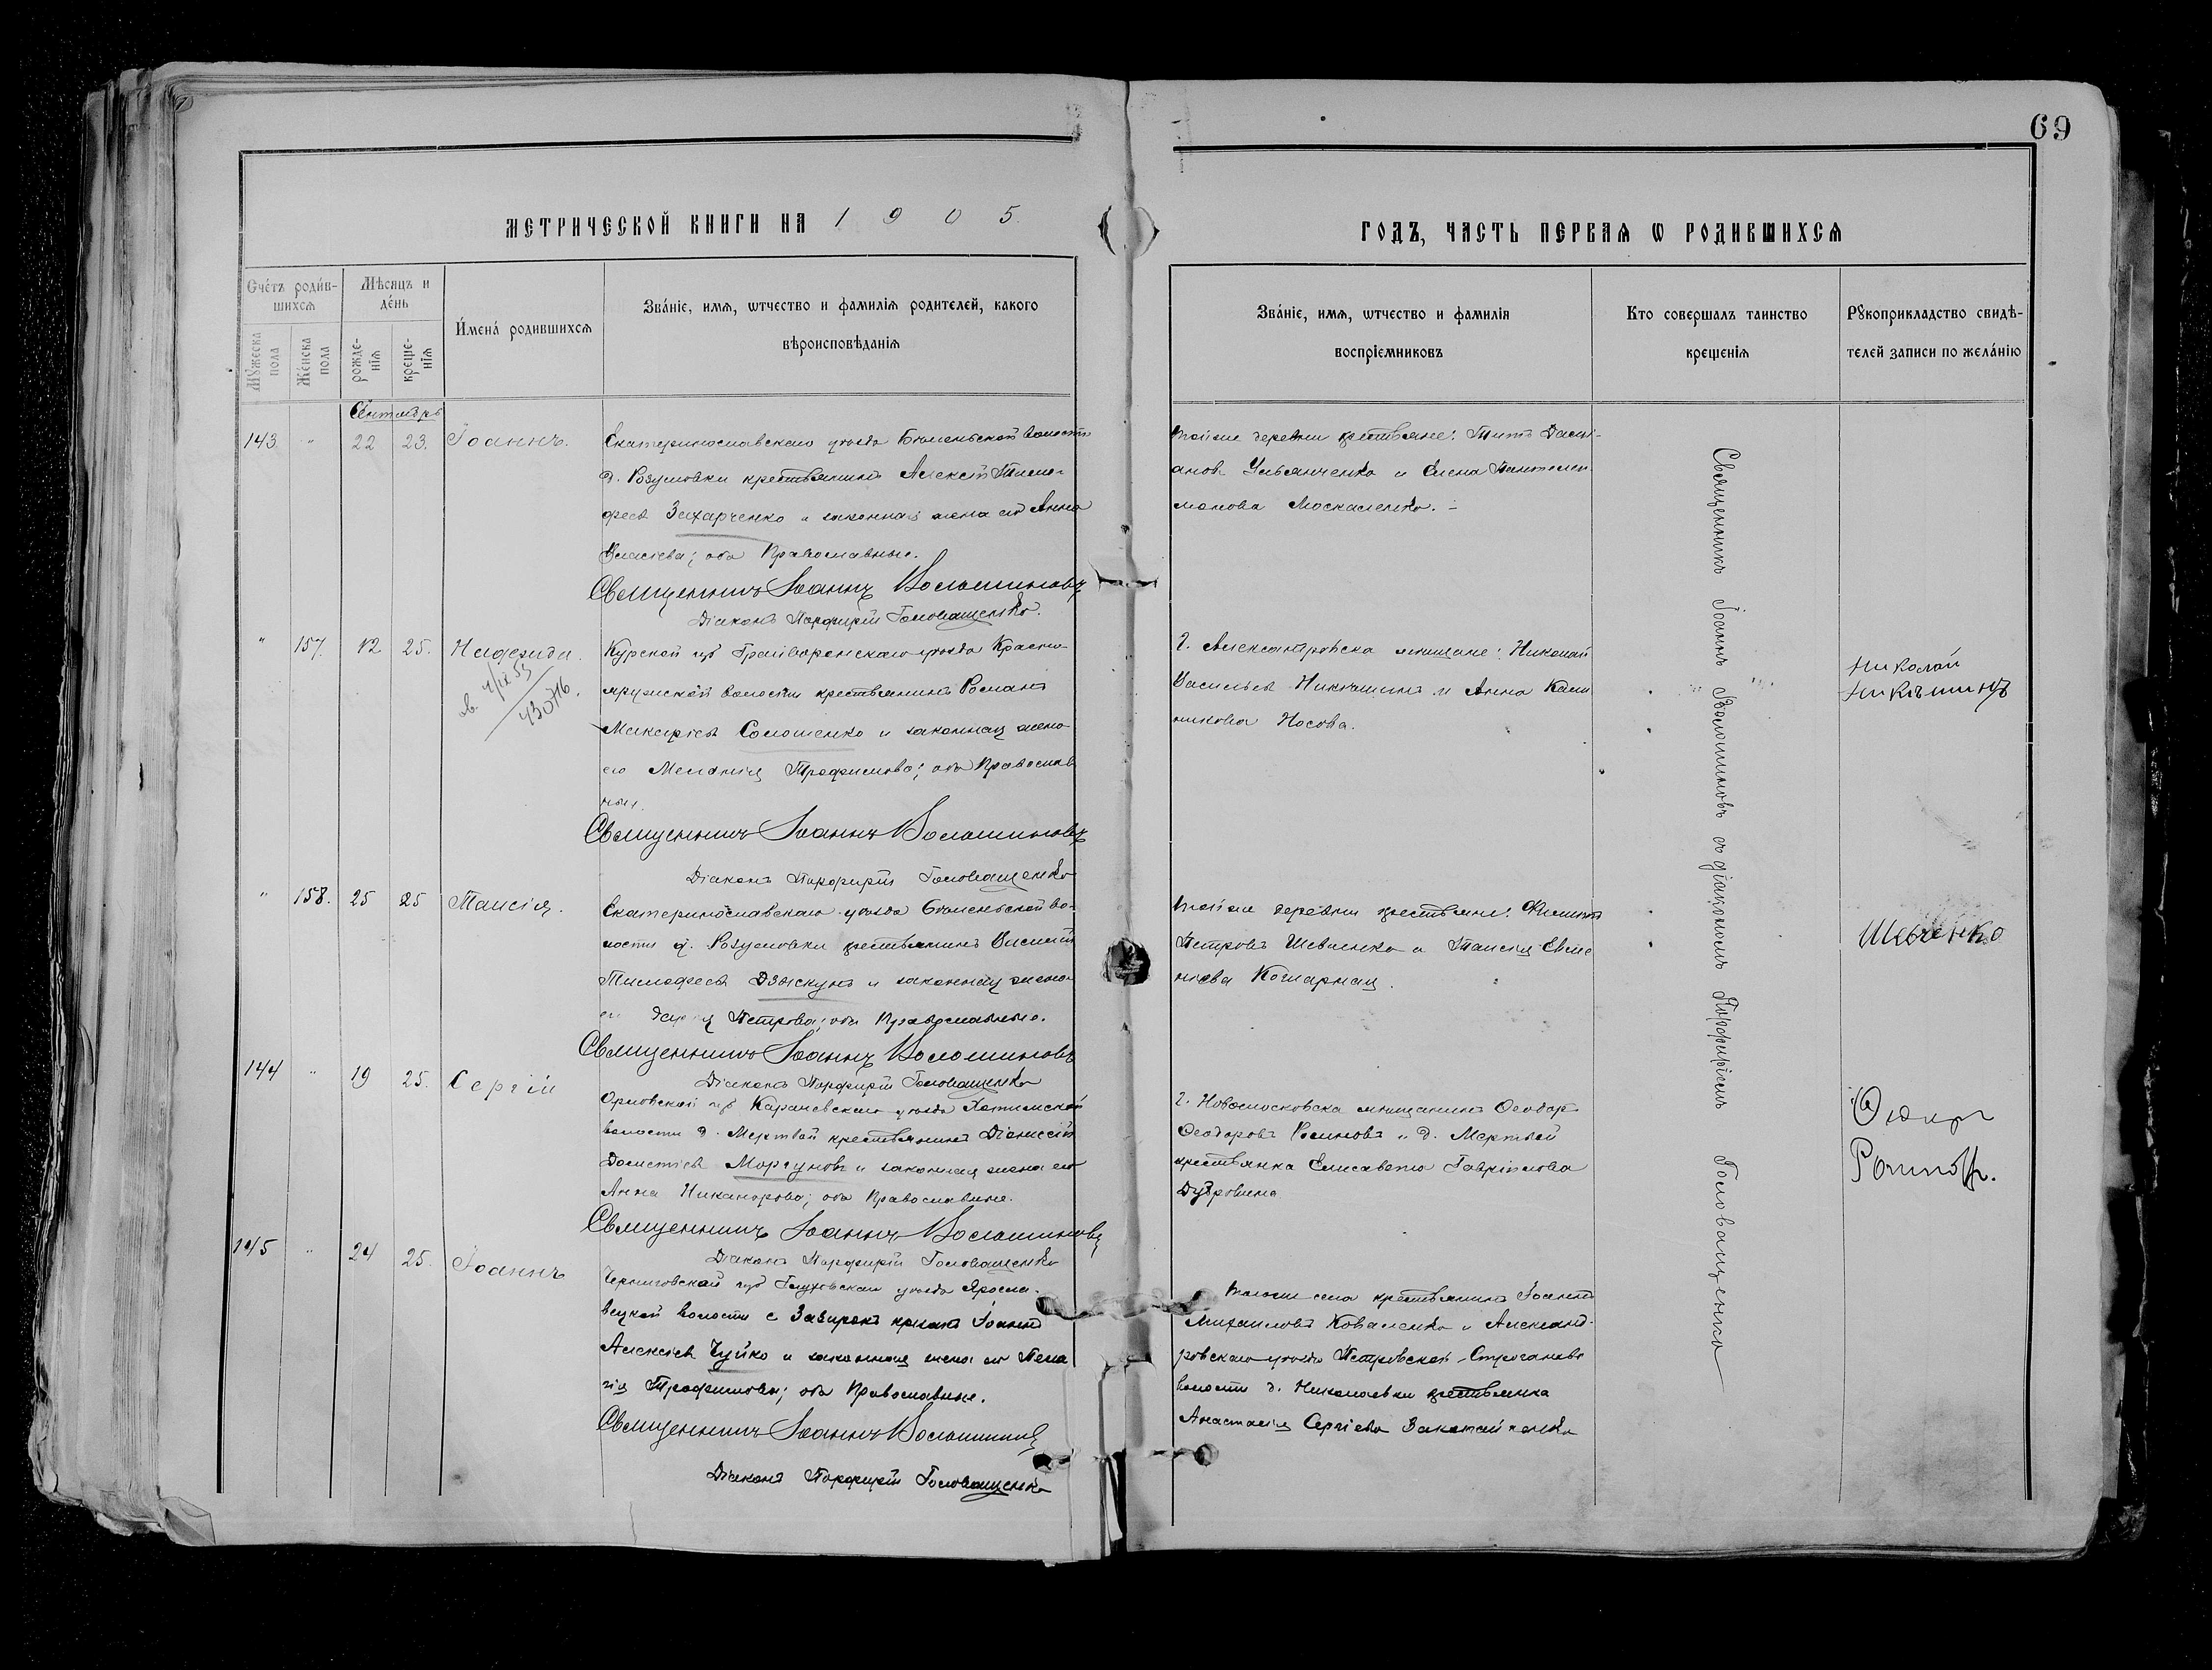 69
МЕТРИЧЕСКОЙ КНИГИ НА 1905.
ГОДЪ, ЧАСТЬ ПЕРВАЯ Ѡ РОДИВШИХСЯ
Счéтъ роди́в-
шихся
Мѣсяцъ и
дéнь
Мꙋжеска
пола
Жéнска
пола
рожде-
нія
креще-
нія
И́мена́ родившихся
Зва́ніе, имя, ѡтчество и фамилія родителей, какого
вѣроисповѣданія
Зва́ніе, имя, ѡтчество и фамилія
воспріемниковъ
Кто совершалъ таинство
крещенія
Рꙋкоприкладство свидѣ-
телей записи по жела́нію
Сентябрь
143. " 22 23. Іоаннъ.
Екатеринославскаго уѣзда Бѣленьской волости
д. Розумовки крестьянинъ Алексѣй Тимо-
феевъ Захарченко и законная жена его Анна
Власіева; оба Православные.
Священникъ Іоаннъ Волошиновъ
Діаконъ Порфирій Головащенко.
той же деревни крестьяне: Титъ Дамі-
анов Ульянченко и Елена Пантелеи
монова Москаленко.
" 157. 12 25. Надежда.
43076.
Курской губ Грайворонскаго уѣзда Красно-
яружской волости крестьянинъ Романъ
Макаріевъ Солошенко и законная жена
его Меланія Трофимова; оба Православ
ные.
Священникъ Іоаннъ Волошиновъ
Діаконъ Порфирій Головащенко
г. Александровска мѣщане: Николай
Васильевъ Никишинъ и Анна Кали
никова Носова.
Николай
Никишинъ
" 158. 25 25 Таисія.
Екатеринославскаго уѣзда Бѣленьской во-
лости д. Розумовки крестьянинъ Василій
Тимофеевъ Дзыскунъ и законная жена
Петрова; оба Православные.
Священникъ Іоаннъ Волошиновъ
Діаконъ Порфирій Головащенко
той же деревни крестьяне: Филиппъ
Петровъ Шевченко и Таисія Евме
ніева Кошарная.
Шевченко
144 " 19 25. Сергій
Орловской губ Карачевскаго уѣзда Хотимской
волости д. Мертвой крестьянинъ Діонисій
Дометіевъ Моргуновъ и законная жена его
Анна Никанорова; оба Православные.
Священникъ Іоаннъ Волошиновъ
Діаконъ Порфирій Головащенко
г. Новомосковска мѣщанинъ Ѳеодоръ
Ѳеодоровъ и д. Мертвой
крестьянка Елисавета Гавріилова
Дубровина
145 " 24 25. Іоаннъ
Черниговской губ Глуховскаго уѣзда Яросла-
вецкой волости с Зазирокъ крест Іоаннъ
Алексіевъ Чуйко и законная жена его Пела
гія Трофимова; оба Православные.
Священникъ Іоаннъ Волошиновъ
Діаконъ Порфирій Головащенко
того же села крестьянинъ Іоаннъ
Михаиловъ Коваленко и Александ-
ровскаго уѣзда Петровской-Строганов
волости д. Николаевки крестьянка
Анастасія Сергіева
Священникъ Іоаннъ Волошиновъ съ діакономъ Порфиріемъ Головащенко